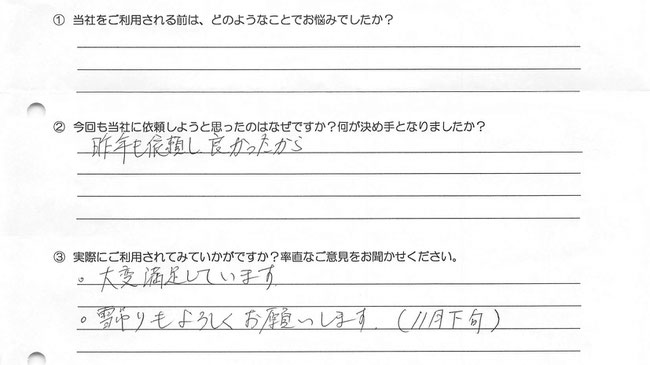 ① 当社をご利用される前は、どのようなことでお悩みでしたか？
② 今回も当社に依頼しようと思ったのはなぜですか？何が決め手となりましたか？
昨年も依頼し良かったから
③ 実際にご利用されてみていかがですか？率直なご意見をお聞かせください。
。大変満足しています
。雪吊りもよろしくお願いします。(11月下旬)